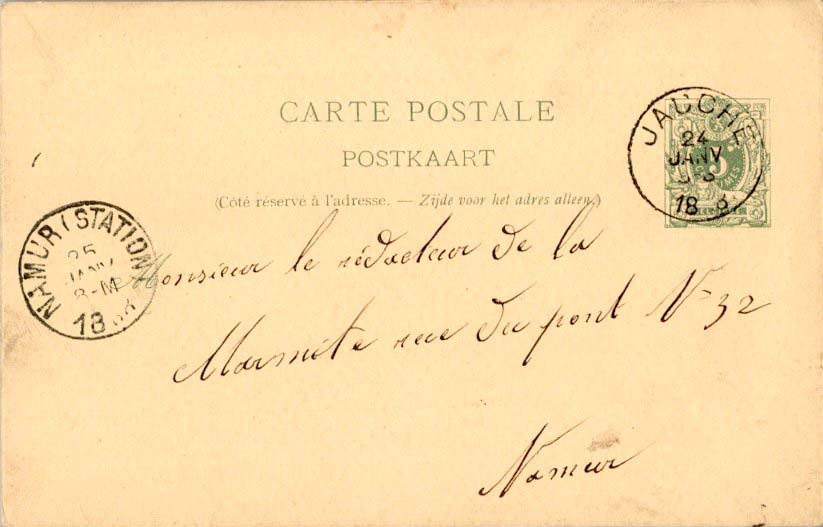 CARTE POSTALE
POSTKAART
(Côté réservé à l'adresse. — Zijde voor het adres alleen.)
JAUCHE
24
JANV
18
NAMUR (STATION)
25
JANV
8-M
18
Monsieur le rédacteur de la
Marmite rue du pont N° 32
Namur